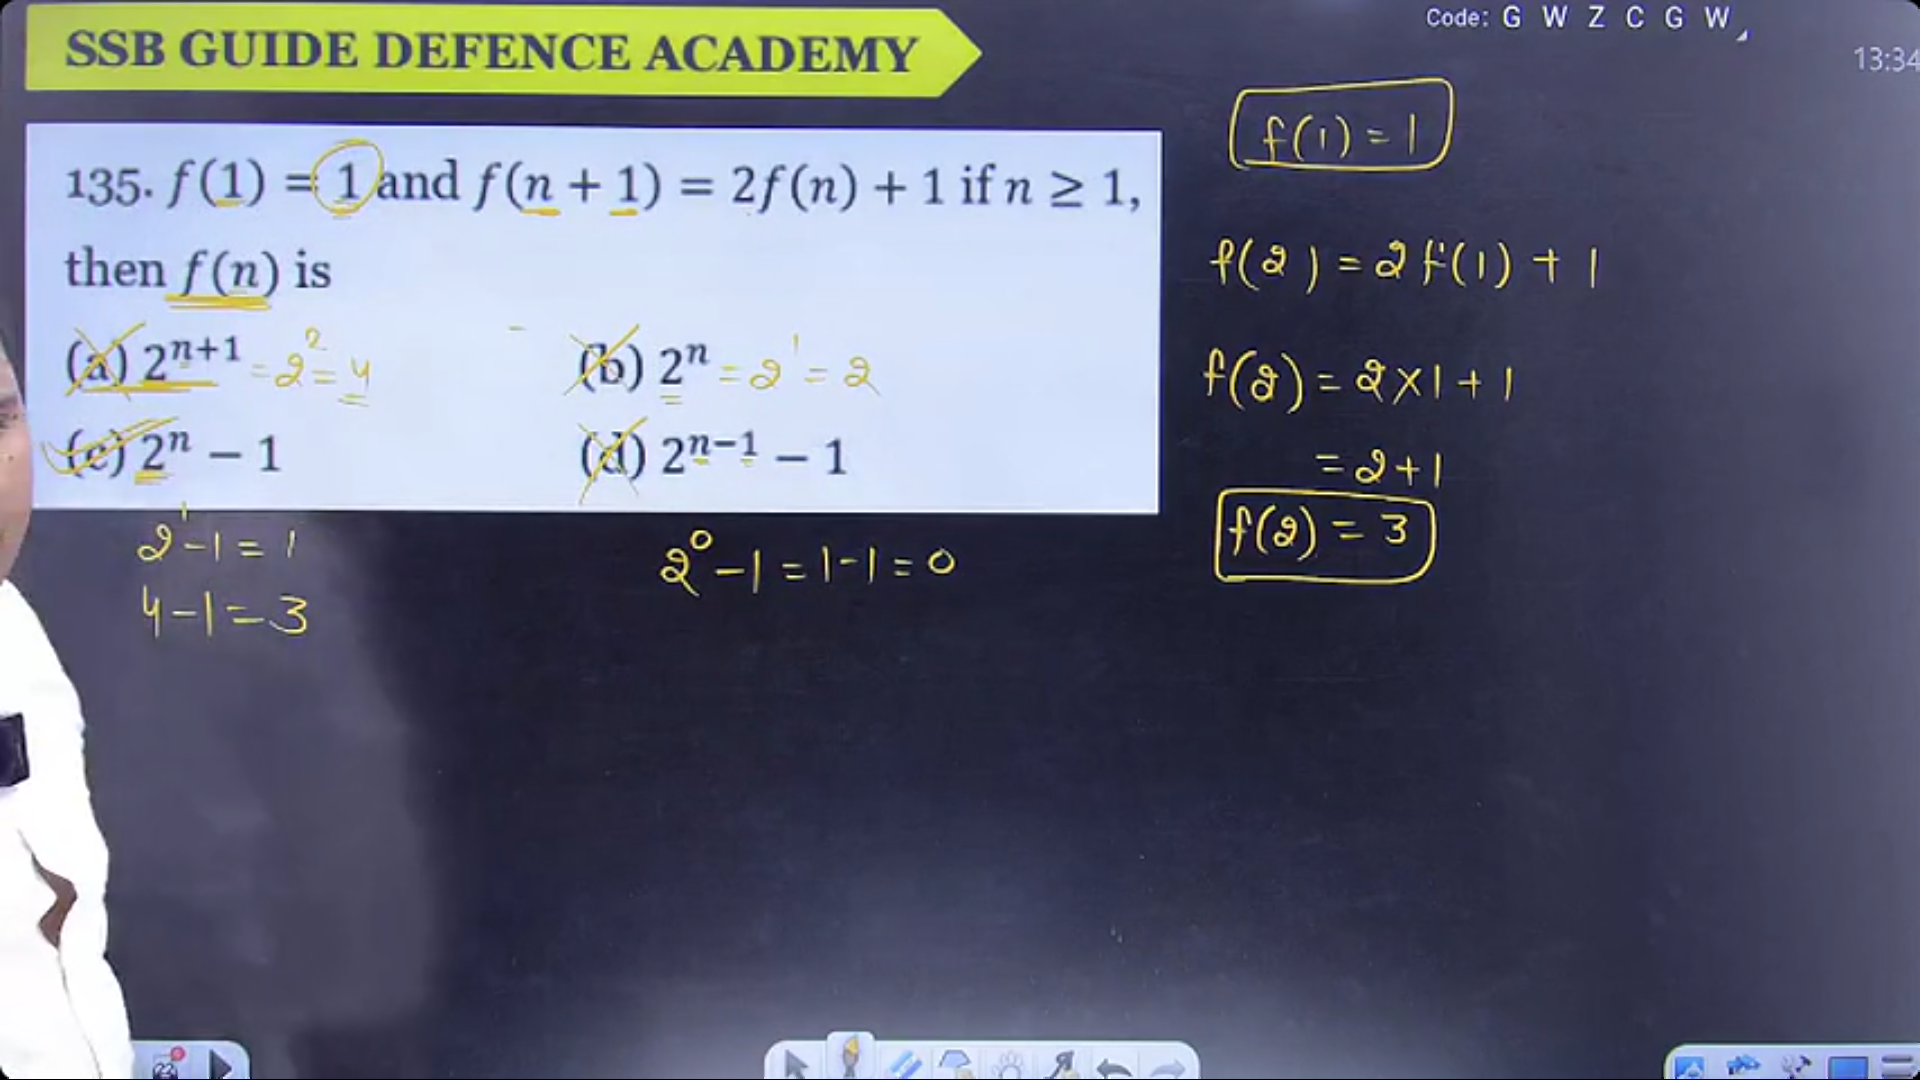 Code: G W Z C G W
SSB GUIDE DEFENCE ACADEMY
13:34
135. f(1) = 1 and f(n + 1) = 2f(n) + 1 if n ≥ 1,
then f(n) is
(a) 2ⁿ⁺¹ = 2² = 4
(b) 2ⁿ = 2¹ = 2
(c) 2ⁿ − 1
(d) 2ⁿ⁻¹ − 1
2¹ − 1 = 1
4 − 1 = 3
2⁰ − 1 = 1 − 1 = 0
f(1) = 1
f(2) = 2 f(1) + 1
f(2) = 2 × 1 + 1
= 2 + 1
f(2) = 3